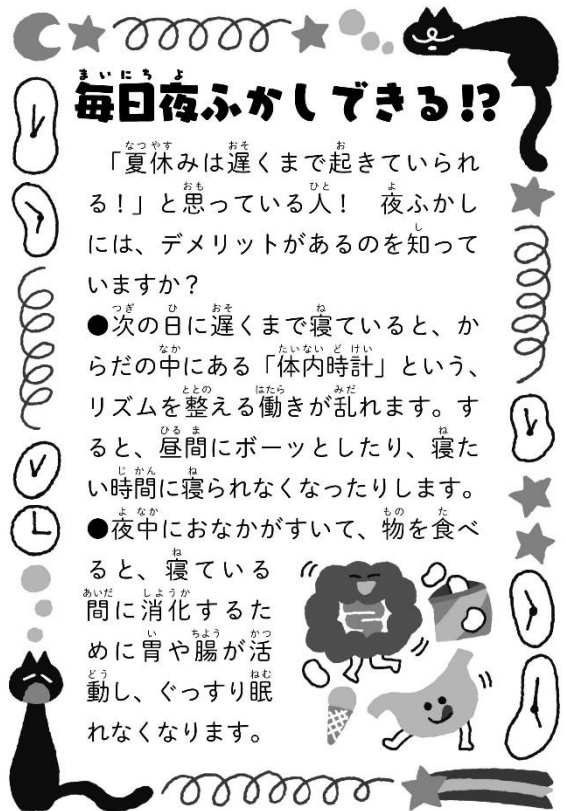 毎日夜ふかしできる!?
「夏休みは遅くまで起きていられ
る！」と思っている人！　夜ふかし
には、デメリットがあるのを知って
いますか？
●次の日に遅くまで寝ていると、か
らだの中にある「体内時計」という、
リズムを整える働きが乱れます。す
ると、昼間にボーッとしたり、寝た
い時間に寝られなくなったりします。
●夜中におなかがすいて、物を食べ
ると、寝ている
間に消化するた
めに胃や腸が活
動し、ぐっすり眠
れなくなります。